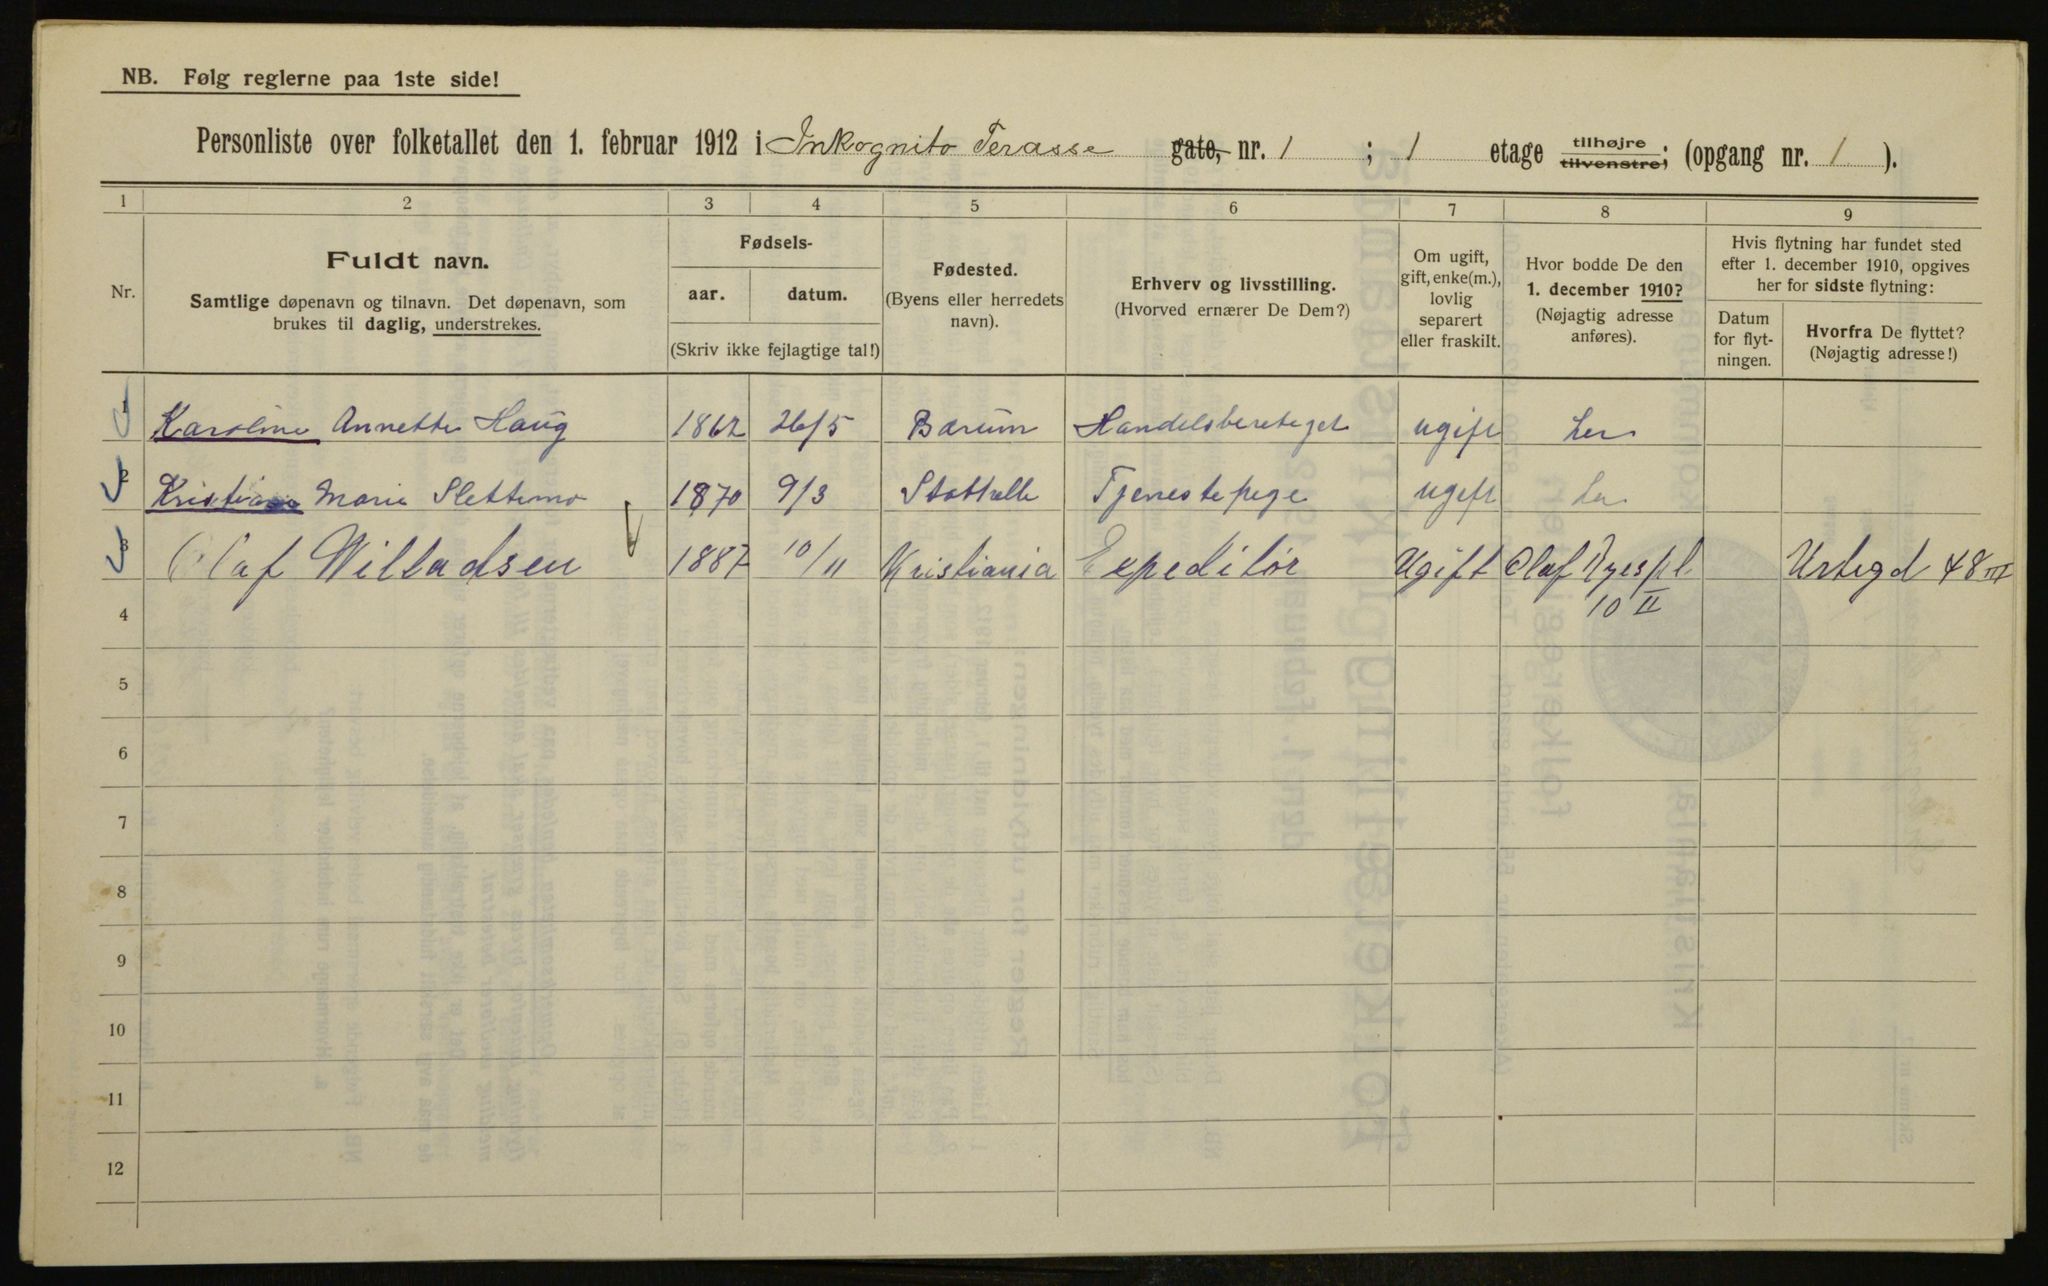 NB. Følg reglerne paa 1ste side!
Personliste over folketallet den 1. februar 1912 i Inkognito Terasse gate, nr. 1 ; 1 etage tilhøjre tilvenstre; (opgang nr. 1 ).
1 2 3 4 5 6 7 8 9
Nr.
Fuldt navn.
Samtlige døpenavn og tilnavn. Det døpenavn, som
brukes til daglig, understrekes.
Fødsels-
aar. datum.
(Skriv ikke fejlagtige tal!)
Fødested.
(Byens eller herredets
navn).
Erhverv og livsstilling.
(Hvorved ernærer De Dem?)
Om ugift,
gift, enke(m.),
lovlig
separert
eller fraskilt.
Hvor bodde De den
1. december 1910?
(Nøjagtig adresse
anføres).
Hvis flytning har fundet sted
efter 1. december 1910, opgives
her for sidste flytning:
Datum
for flyt-
ningen.
Hvorfra De flyttet?
(Nøjagtig adresse!)
1 Karoline Annette Haug 1862 26/5 Bærum ugift her
2 Marie Slettemo 1870 9/3 Tjenestepige ugift her
3 Olaf Willadsen 1887 10/11 Kristiania Expeditör Ugift Olaf Ryespl. Urtegd 48 III
10 II
4
5
6
7
8
9
10
11
12